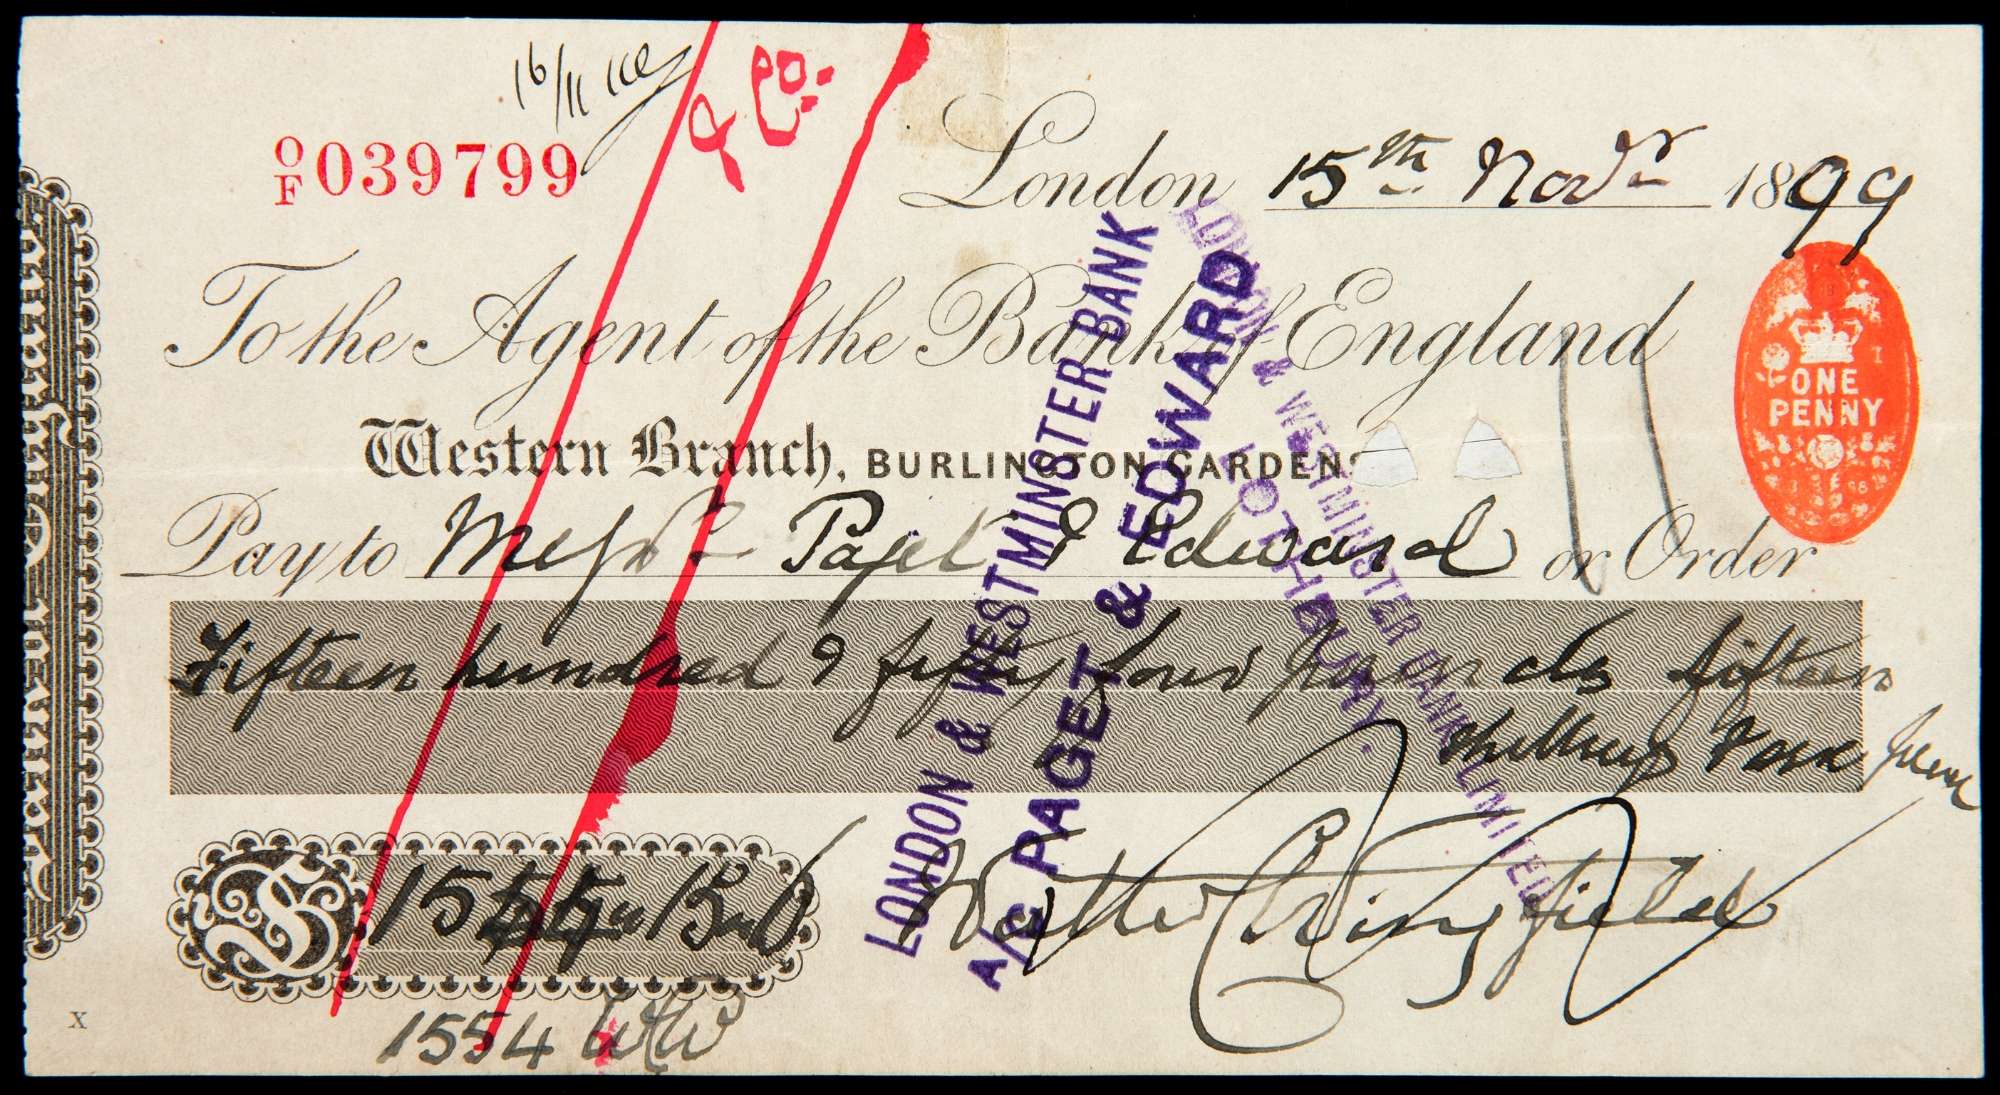 16/11
& Co.
O/F 039799
London 15th Novr 1899
To the Agent of the Bank of England
Western Branch, BURLINGTON GARDENS
ONE PENNY
Pay to Messrs Paget & Edward or Order
Fifteen hundred & fifty four pounds fifteen
shillings & six pence
£
1554 WCW
Walter C Wingfield
LONDON & WESTMINSTER BANK
A/C PAGET & EDWARD
LONDON & WESTMINSTER BANK LIMITED
LOTHBURY.
Bank of England
X